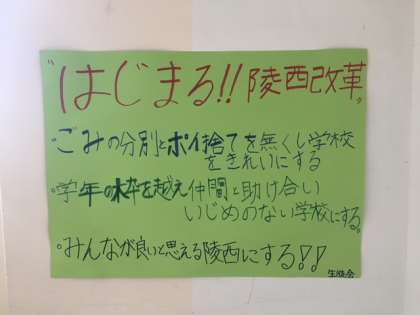 "はじまる!!陵西改革"
・ごみの分別とポイ捨てを無くし学校
をきれいにする
・学年の枠を越え仲間と助け合い
いじめのない学校にする。
・みんなが良いと思える陵西にする!!
生徒会